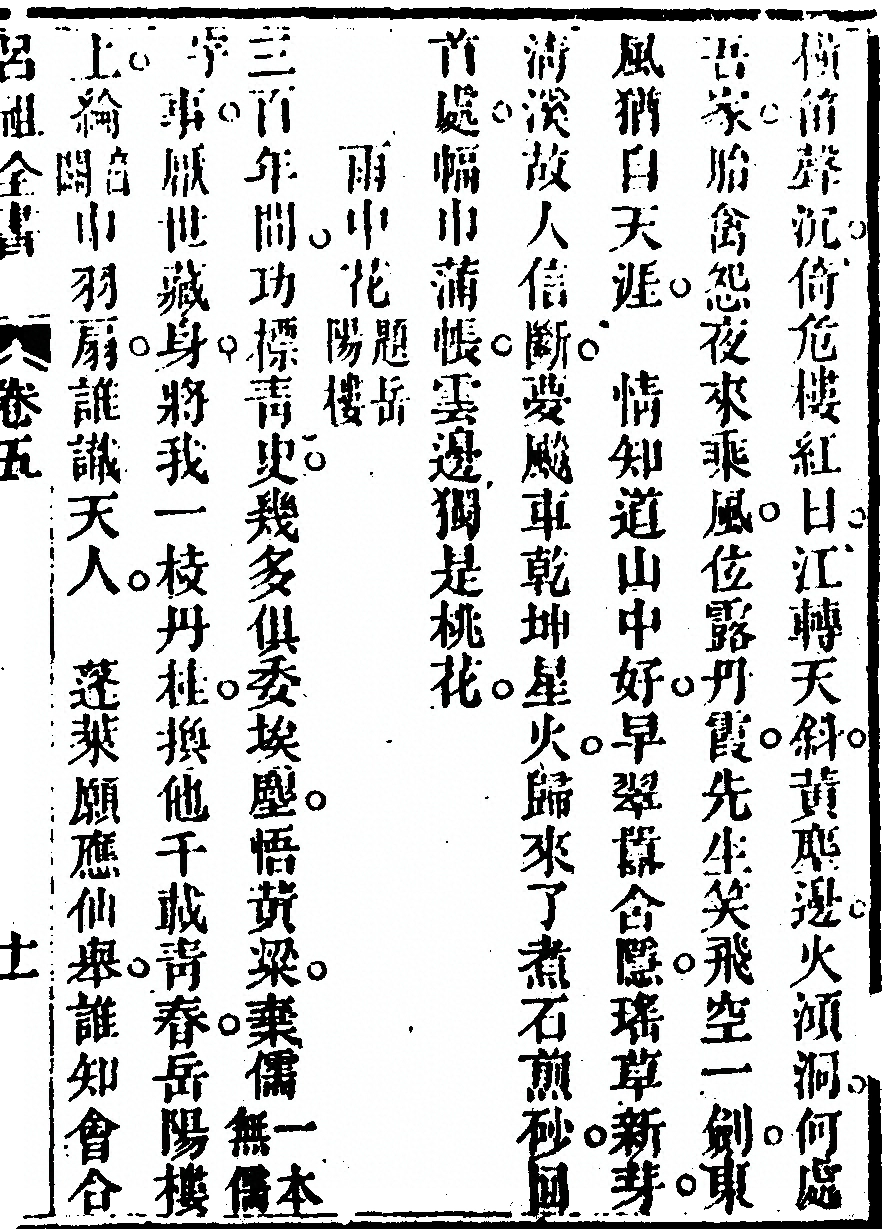 橫笛聲沉倚危樓紅日江轉天斜黃塵邊火澒洞何處
吾家胎禽怨夜來乘風位露丹霞先生笑飛空一劍東
風猶自天涯　情知道山中好早翠囂含隱瑤草新芽
淸溪故人信斷夢颷車乾坤星火歸來了煮石煎砂回
首處幅巾蒲帳雲邊獨是桃花
雨中花題岳陽樓
三百年間功標靑史幾多俱委埃塵悟黃粱棄儒一本無儒
字事厭世藏身將我一枝丹桂換他千載靑春岳陽樓
上綸音關巾羽扇誰識天人　蓬萊願應仙舉誰知會合
呂祖全書
卷五
十一